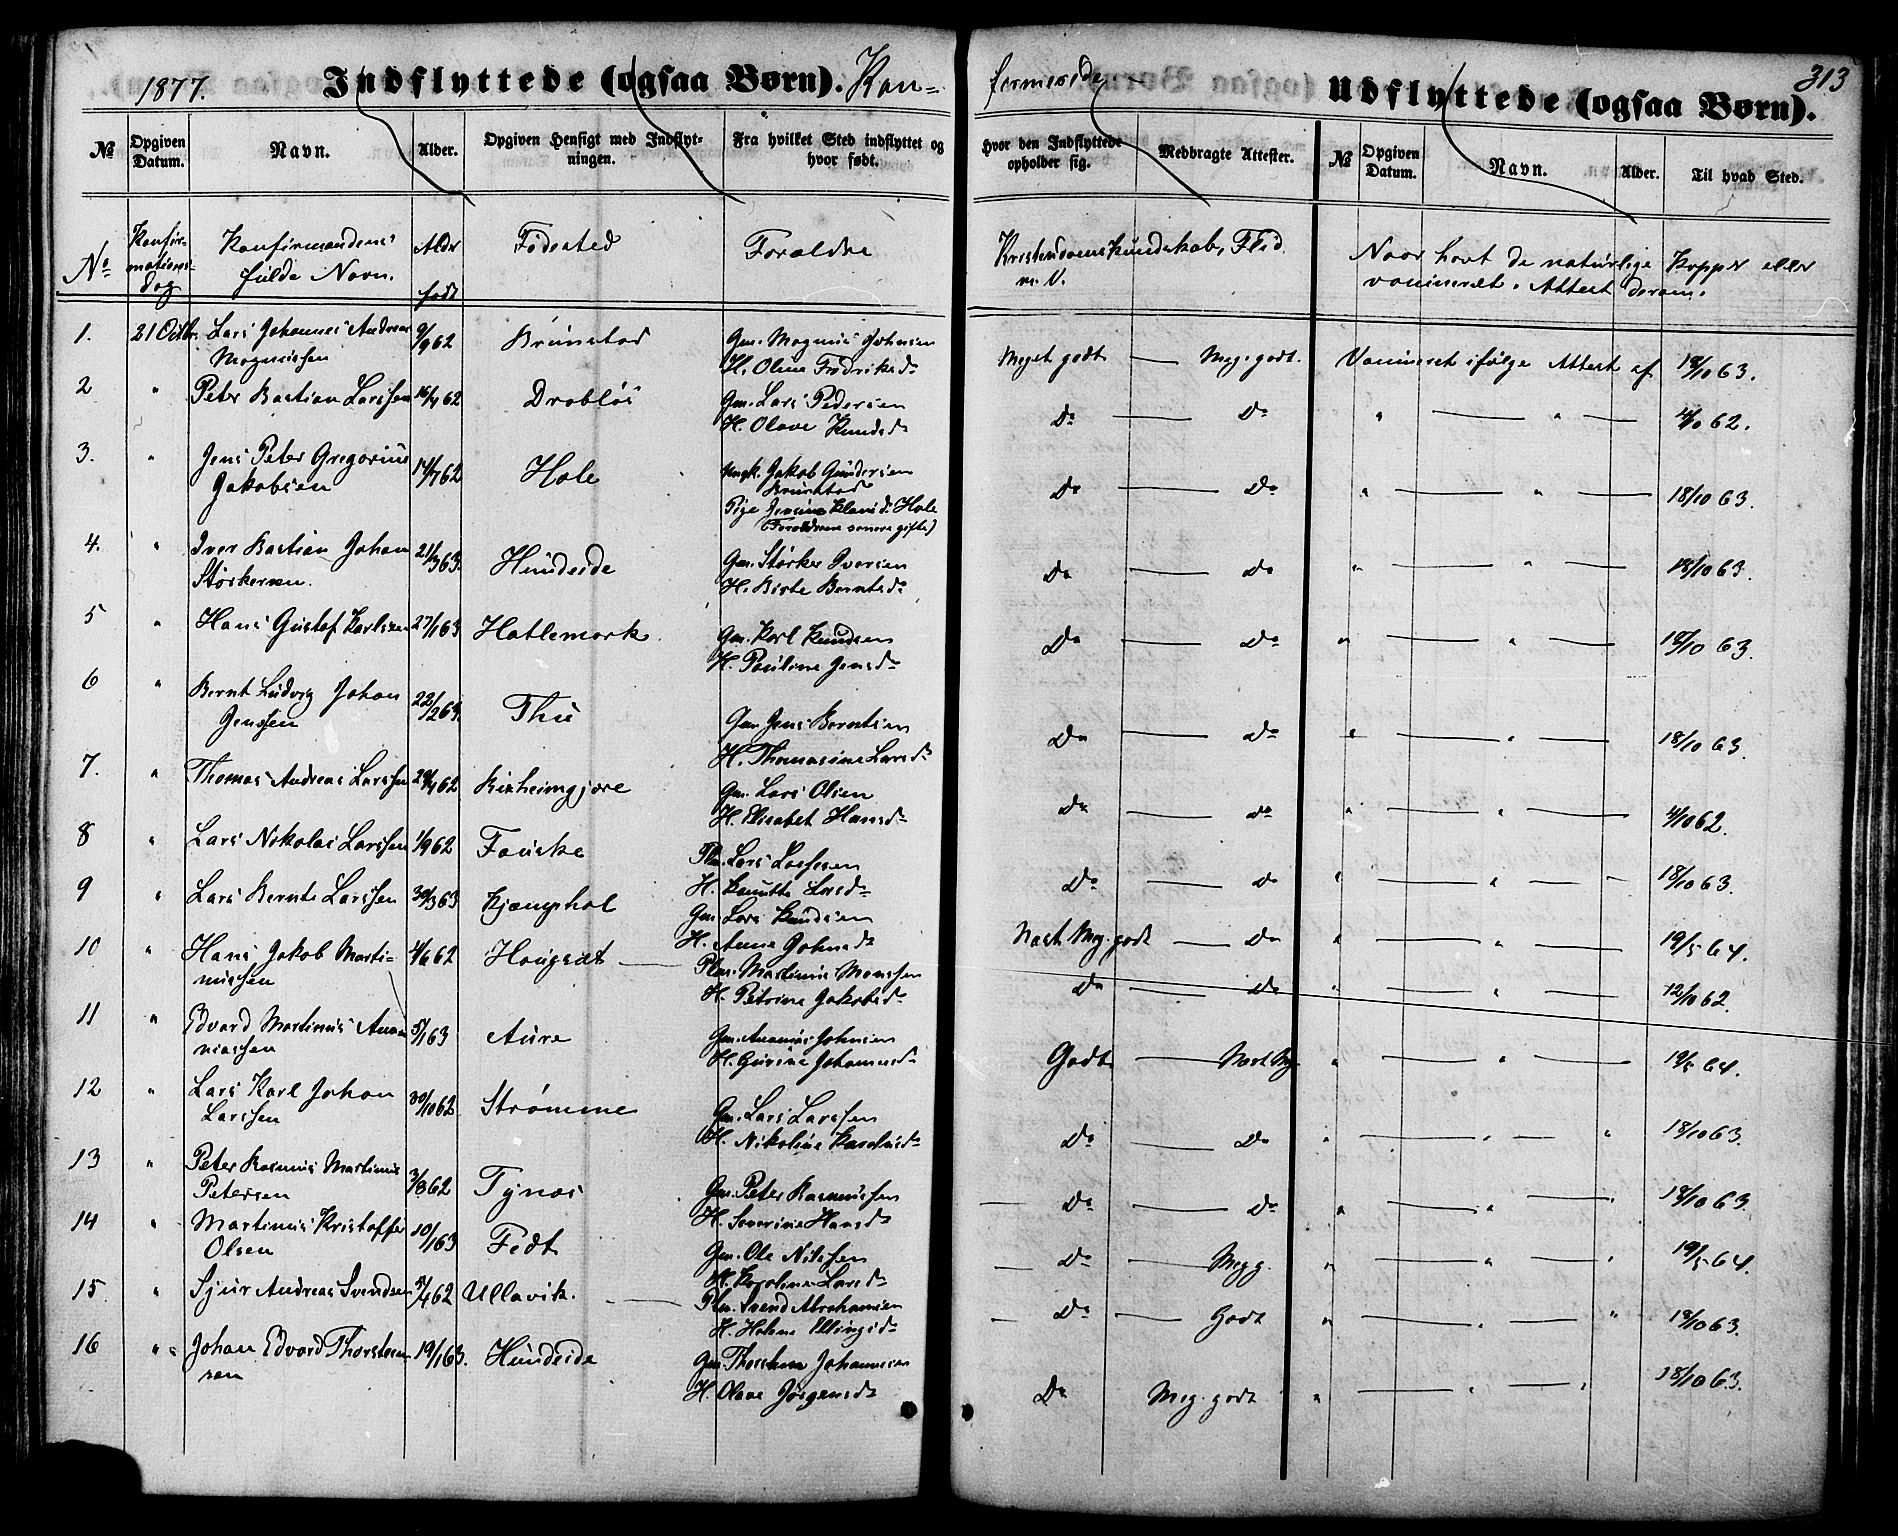 1877. Indflyttede (ogsaa Børn). Kon-
firmerede 313
Udflyttede (ogsaa Børn).
№ Opgiven Datum. Navn. Alder. Opgiven Hensigt med Indflyt-ningen. Fra hvilket Sted indflyttet og hvor født.
Hvor den Indflyttede opholder sig. Medbragte Attester. № Opgiven Datum. Navn. Alder. Til hvad Sted.
No Konfir-mations-dag Konfirmandens fulde Navn. Alder født Fødested Forældre
Kristendomskundskab, Flid m. V. Naar havt de naturlige Kopper eller vaccineret. Attest derom.
1. 21 Octbr. Lars Johannes Andreas Magnussen 9/9 62 Brunstad Gm. Magnus Johnsen H. Oline Fredriksd. Meget godt — Meg. godt. Vaccineret ifølge Attest af 18/10 63.
2 " Peter Bastian Larssen 16/4 62 Drabløs Gm. Lars Pedersen H. Olave Knudsd. Do — Do " — " — 4/10 62.
3. " Jens Peter Gregorius Jakobsen 14/7 62 Hole Ungk. Jakob Gundersen Brunstad Pige Jensine Elavsd. Hole (Forældrene senere gifte) Do — Do " — " — 18/10 63.
4. " Iver Bastian Johan Størkersen. 21/3 63. Hundeide Gm. Størker Iversen H. Birte Berntsd. Do — Do " — " — 18/10 63.
5 " Hans Gustaf Karlsen 27/1 63 Hatlemark Gm. Karl Knudsen H. Pauline Jensd. Do — Do " — " — 18/10 63.
6 " Bernt Ludvig Johan Jenssen 22/2 63. Thu Gm. Jens Berntsen H. Thomasine Larsd. Do — Do " — " — 18/10 63.
7. " Thomas Andreas Larssen 29/4 62 Kirheimgjære Gm. Lars Olsen H. Elisabet Hansd. Do — Do " — " — 4/10 62.
8 " Lars Nikolai Larssen 1/9 62 Fauske Plm. Lars Larssen H. Knutte Larsd. Do — Do " — " — 18/10 63.
9 " Lars Bernt Larssen 30/3 63 Kjemphol Gm. Lars Knudsen H. Anne Johnsd. Næst Meg. godt — Do " — " — 19/5 64.
10 " Hans Jakob Marti-nussen 4/6 62 Haugset — Plm. Martinus Monssen H. Petrine Jakobsd. Do — Do " — " — 12/10 62.
11 " Edvard Martinus Ananiassen 5/1 63 Aure Gm. Ananias Johnsen H. Gurine Johannesd. Godt — Næst Mg. " — " — 19/5 64.
12 " Lars Karl Johan Larssen 30/10 62. Strømme Gm. Lars Larssen H. Nikoline Karolusd. Do — Do " — " — " 18/10 63.
13 " Peter Rasmus Martinus Petersen 3/3 62 Tynes Gm. Peter Rasmussen H. Severine Hansd. — Do — Do " — " — " 18/10 63.
14 " Martinus Kristoffer Olsen 10/1 63 Fedt Gm. Ole Nilssen H. Karoline Larsd. — Do — Meg g. " — " — " 19/5 64.
15. " Sjur Andreas Svendsen 5/4 62 Ullavik. — Plm. Svend Abrahamsen H. Helene Ellingsd. — Do — Godt " — " — " 18/10 63.
16 " Johan Edvard Thorsteinsen 19/1 63. Hundeide Gm. Thorstein Johannesen H. Olave Jørgensd. Do Meg. godt " — " — " 18/10 63.